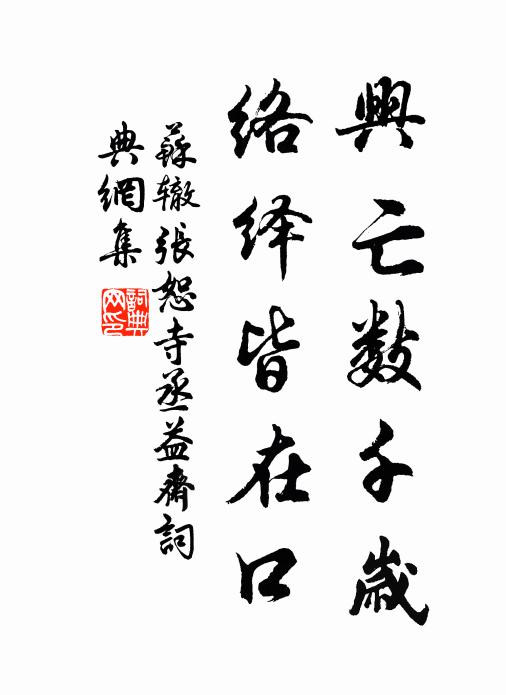 興亡数千歲
络绎皆在口
蘇辙張恕寺丞益齋詞
典網集
詞典
网印